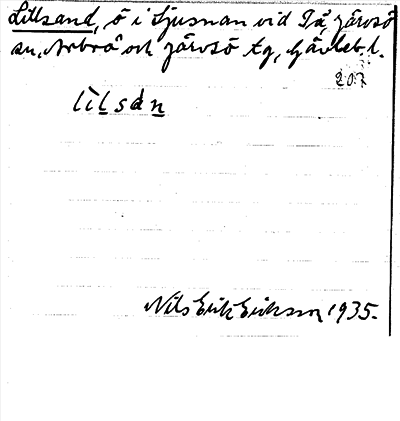 Lillsand, ö i Ljusnan vid Då, Järvsö
sn, Arbrå och Järvsö tg, Gävleb. l.
207
lilsan
Nils Erik Eriksson 1935.